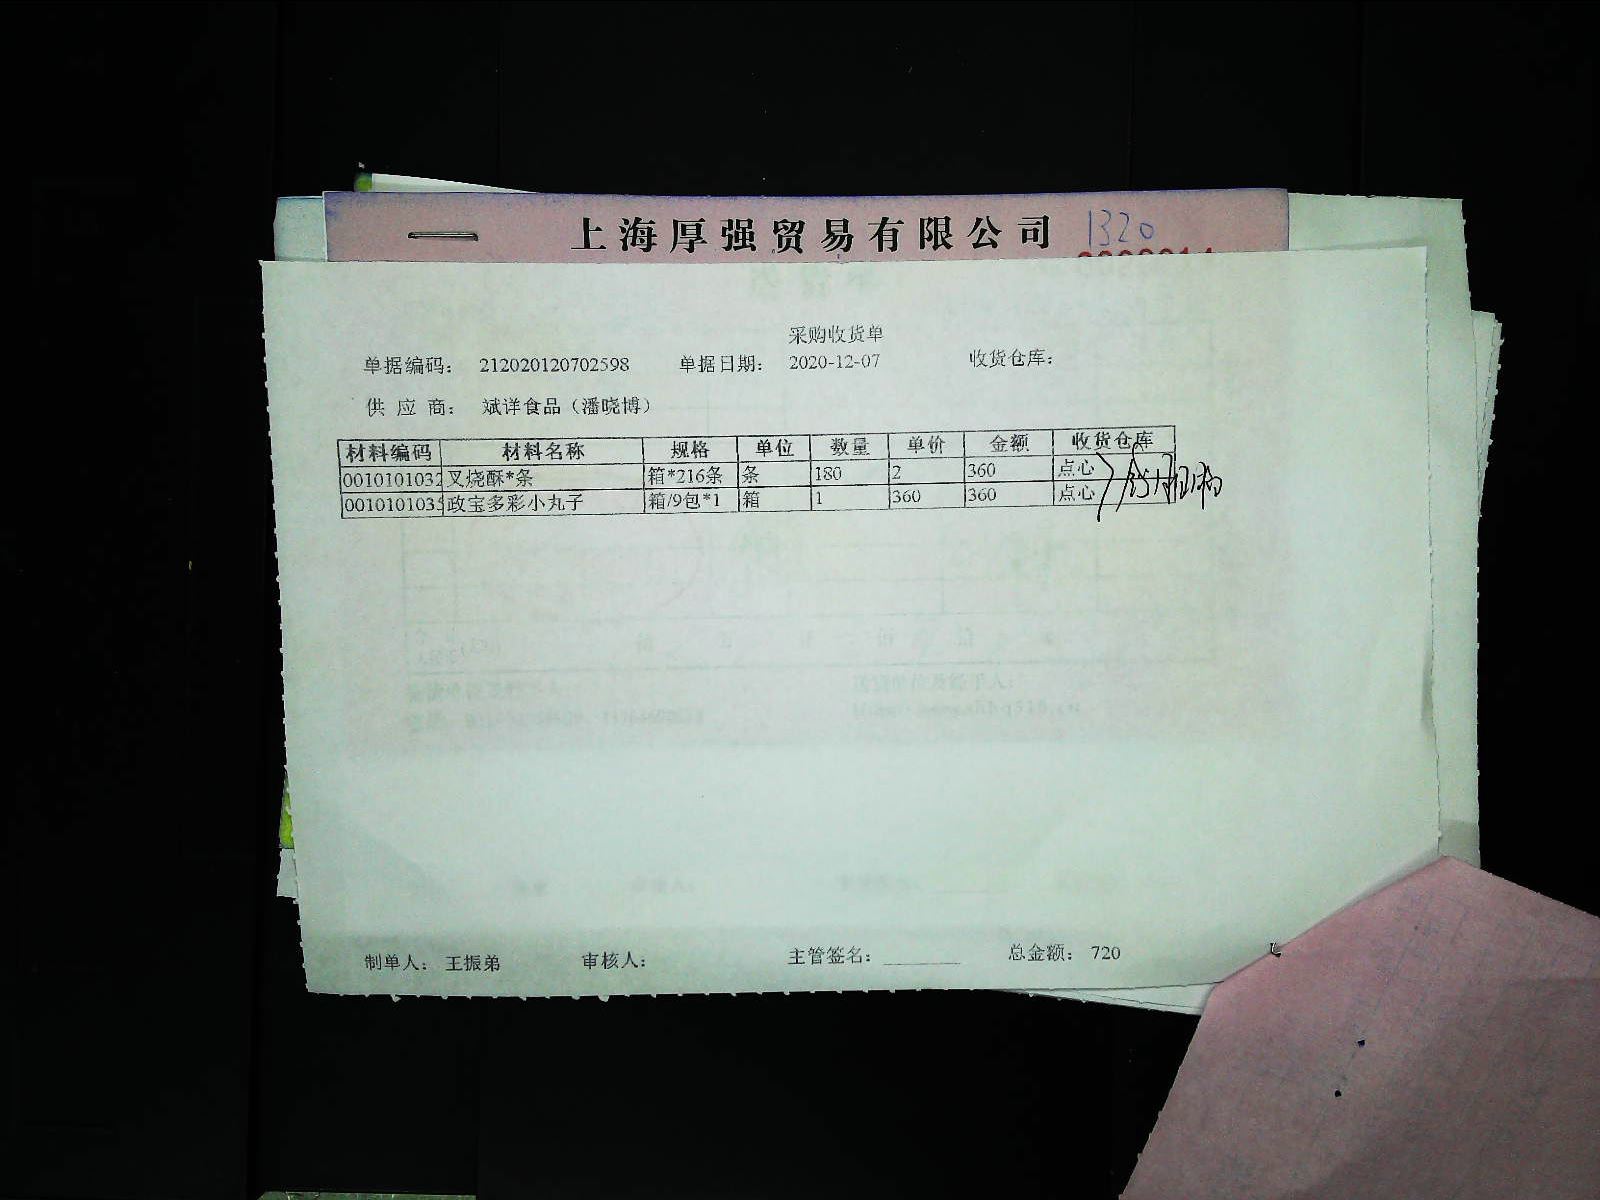 上海厚强贸易有限公司 1320
采购收货单
单据编码: 212020120702598 单据日期: 2020-12-07 收货仓库:
供 应 商: 斌详食品（潘晓博）
材料编码 材料名称 规格 单位 数量 单价 金额 收货仓库
0010101032 叉烧酥*条 箱*216条 条 180 2 360 点心
0010101035 政宝多彩小丸子 箱/9包*1 箱 1 360 360 点心
制单人: 王振弟 审核人: 主管签名: ________ 总金额: 720